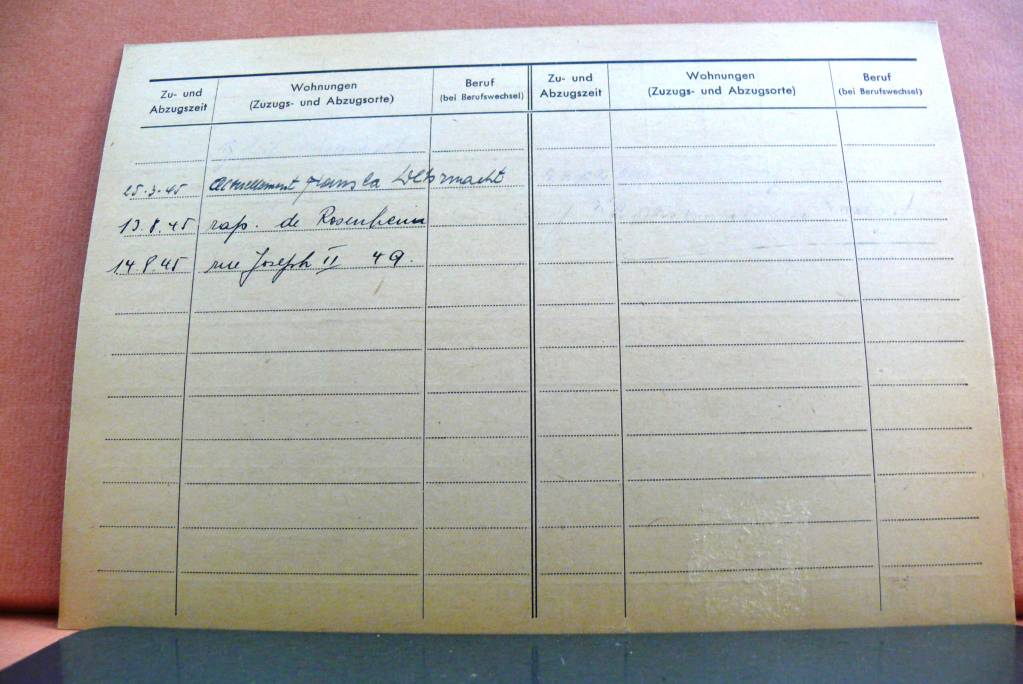 Zu- und Abzugszeit
Wohnungen
(Zuzugs- und Abzugsorte)
Beruf
(bei Berufswechsel)
Zu- und Abzugszeit
Wohnungen
(Zuzugs- und Abzugsorte)
Beruf
(bei Berufswechsel)
25.3.45 actuellement dans la Wehrmacht
13.8.45 rap. de Rosenheim
14.8.45 rue Joseph II 49.